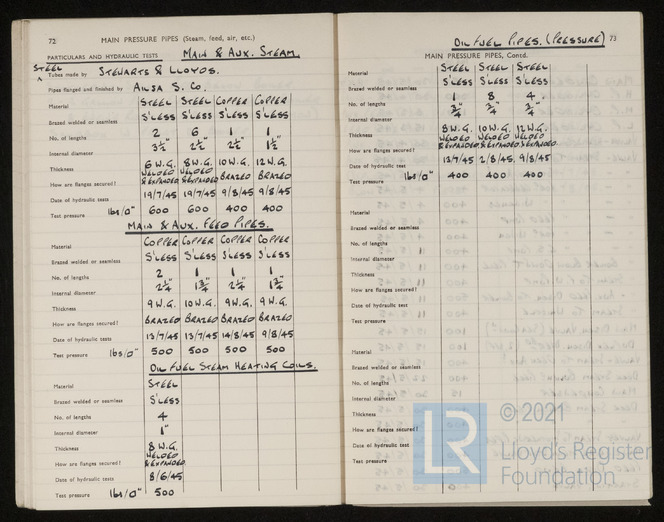 72 MAIN PRESSURE PIPES (Steam, feed, air, etc.)
PARTICULARS AND HYDRAULIC TESTS MAIN & AUX. STEAM.
STEEL
Tubes made by STEWARTS & LLOYDS.
Pipes flanged and finished by AILSA S. CO.
Material STEEL STEEL COPPER COPPER
Brazed welded or seamless S'LESS S'LESS S'LESS S'LESS
No. of lengths 2 6 1 1
Internal diameter 3½" 2½" 2½" 1½"
Thickness 6 W.G. 8 W.G. 10 W.G. 12 W.G.
How are flanges secured? WELDED & EXPANDED WELDED & EXPANDED BRAZED BRAZED
Date of hydraulic tests 19/7/45 19/7/45 9/8/45 9/8/45
Test pressure lbs/□" 600 600 400 400
MAIN & AUX. FEED PIPES.
Material COPPER COPPER COPPER COPPER
Brazed welded or seamless S'LESS S'LESS S'LESS S'LESS
No. of lengths 2 1 1 1
Internal diameter 2¼" 1¾" 2¼" 1¾"
Thickness 9 W.G. 10 W.G. 9 W.G. 9 W.G.
How are flanges secured? BRAZED BRAZED BRAZED BRAZED
Date of hydraulic tests 13/7/45 13/7/45 14/8/45 9/8/45
Test pressure lbs/□" 500 500 500 500
OIL FUEL STEAM HEATING COILS.
Material STEEL
Brazed welded or seamless S'LESS
No. of lengths 4
Internal diameter 1"
Thickness 8 W.G.
How are flanges secured? WELDED & EXPANDED
Date of hydraulic tests 8/6/45
Test pressure lbs/□" 500
OIL FUEL PIPES. (PRESSURE) 73
MAIN PRESSURE PIPES, Contd.
Material STEEL STEEL STEEL
Brazed welded or seamless S'LESS S'LESS S'LESS
No. of lengths 1 8 4
Internal diameter ¾" ¾" ¾"
Thickness 8 W.G. 10 W.G. 12 W.G.
How are flanges secured? WELDED & EXPANDED WELDED & EXPANDED WELDED & EXPANDED
Date of hydraulic test 13/7/45 2/8/45 9/8/45
Test pressure lbs/□" 400 400 400
Material
Brazed welded or seamless
No. of lengths
Internal diameter
Thickness
How are flanges secured?
Date of hydraulic test
Test pressure
Material
Brazed welded or seamless
No. of lengths
Internal diameter
Thickness
How are flanges secured?
Date of hydraulic test
Test pressure
LR © 2021
Lloyd's Register
Foundation